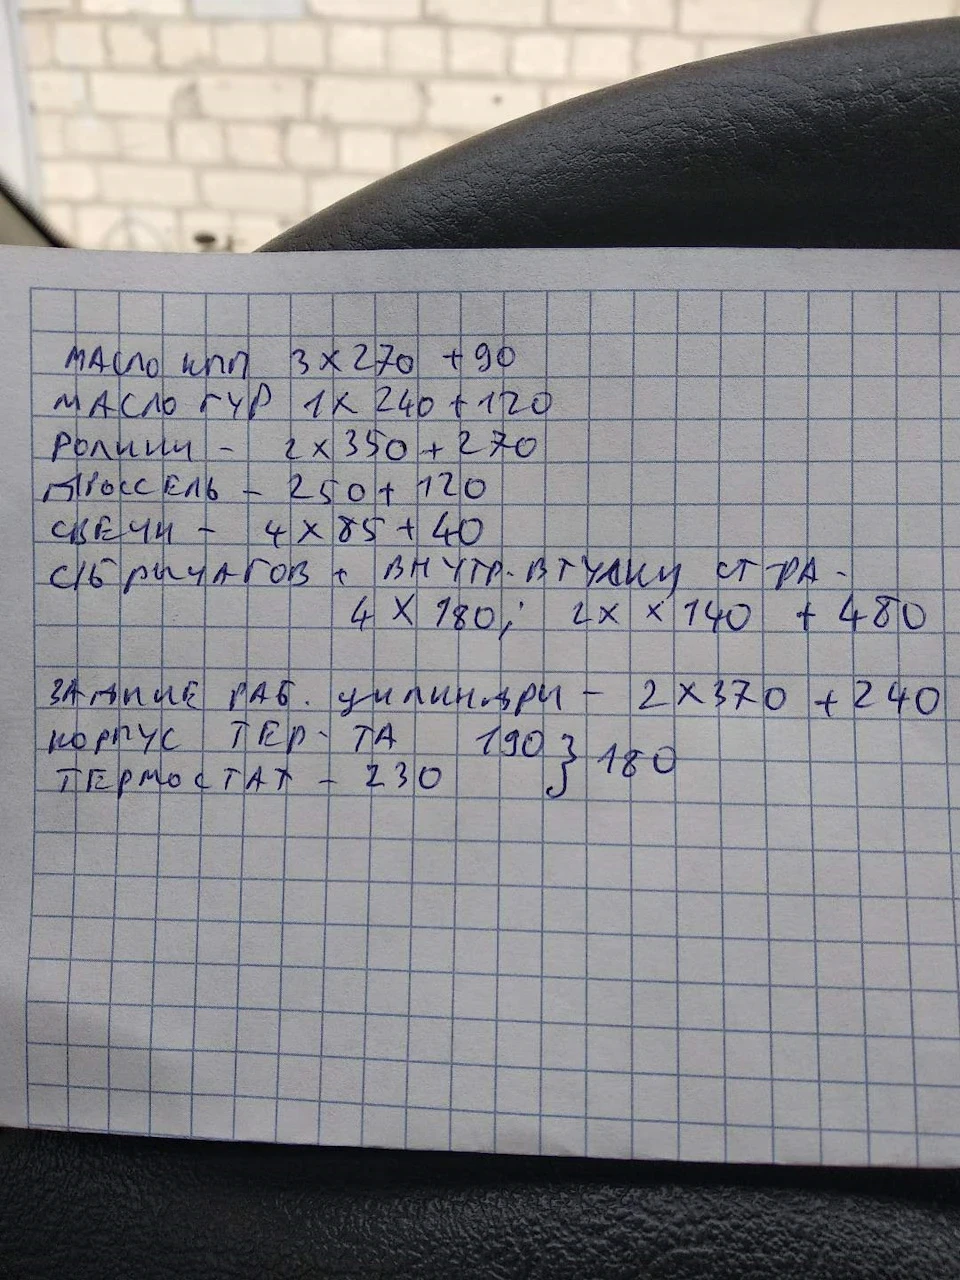 МАСЛО КПП 3 x 270 + 90
МАСЛО ГУР 1 x 240 + 120
РОЛИКИ - 2 x 350 + 270
ДРОССЕЛЬ - 250 + 120
СВЕЧИ - 4 x 85 + 40
С/Б РЫЧАГОВ + ВНУТР. ВТУЛКИ СТ РА -
4 x 180; 2 x x 140 + 480
ЗАДНИЕ РАБ. ЦИЛИНДРЫ - 2 x 370 + 240
КОРПУС ТЕР-ТА 190 } 180
ТЕРМОСТАТ - 230